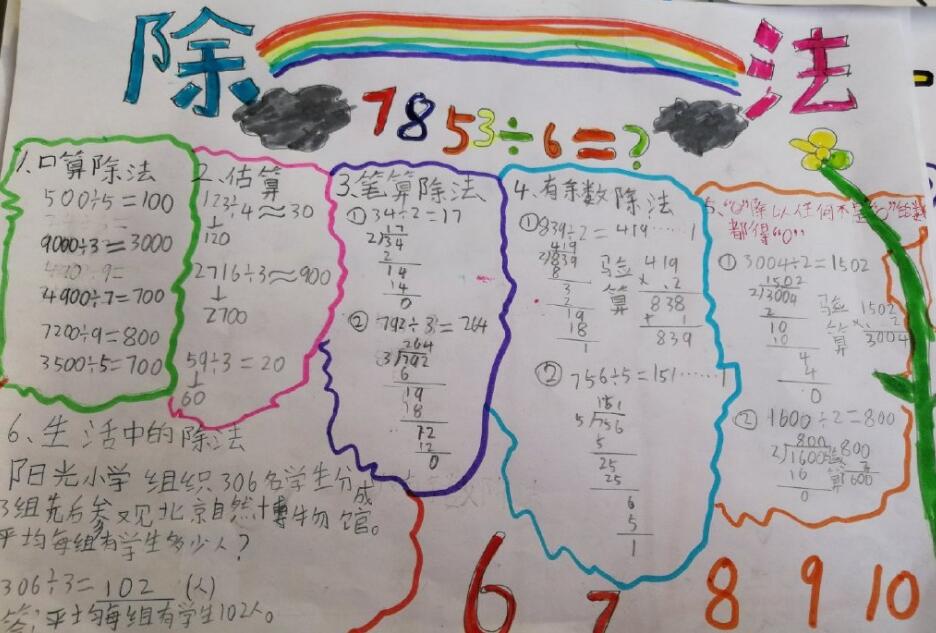 除法
7853÷6=?
1、口算除法
500÷5=100
9000÷3=3000
4900÷7=700
7200÷9=800
3500÷5=700
2、估算
123÷4≈30
↓
120
2716÷3≈900
↓
2700
59÷3=20
↓
60
3、笔算除法
①34÷2=17
17
2√34
2
14
14
0
②792÷3=264
264
3√792
6
19
18
72
12
0
4、有余数除法
①839÷2=419……1
419
2√839
8
3
2
19
18
1
验算
419
×2
838
+1
839
②756÷5=151……1
151
5√756
5
25
25
6
5
1
5、“0”除以任何不是“0”的数
都得“0”
①3004÷2=1502
1502
2√3004
2
10
10
4
4
0
验算
1502
×2
3004
②1600÷2=800
800
2√1600
16
0
验算
800
6、生活中的除法
阳光小学组织306名学生分成
3组先后参观北京自然博物馆。
平均每组有学生多少人？
306÷3=102（人）
答：平均每组有学生102人。
6 7 8 9 10